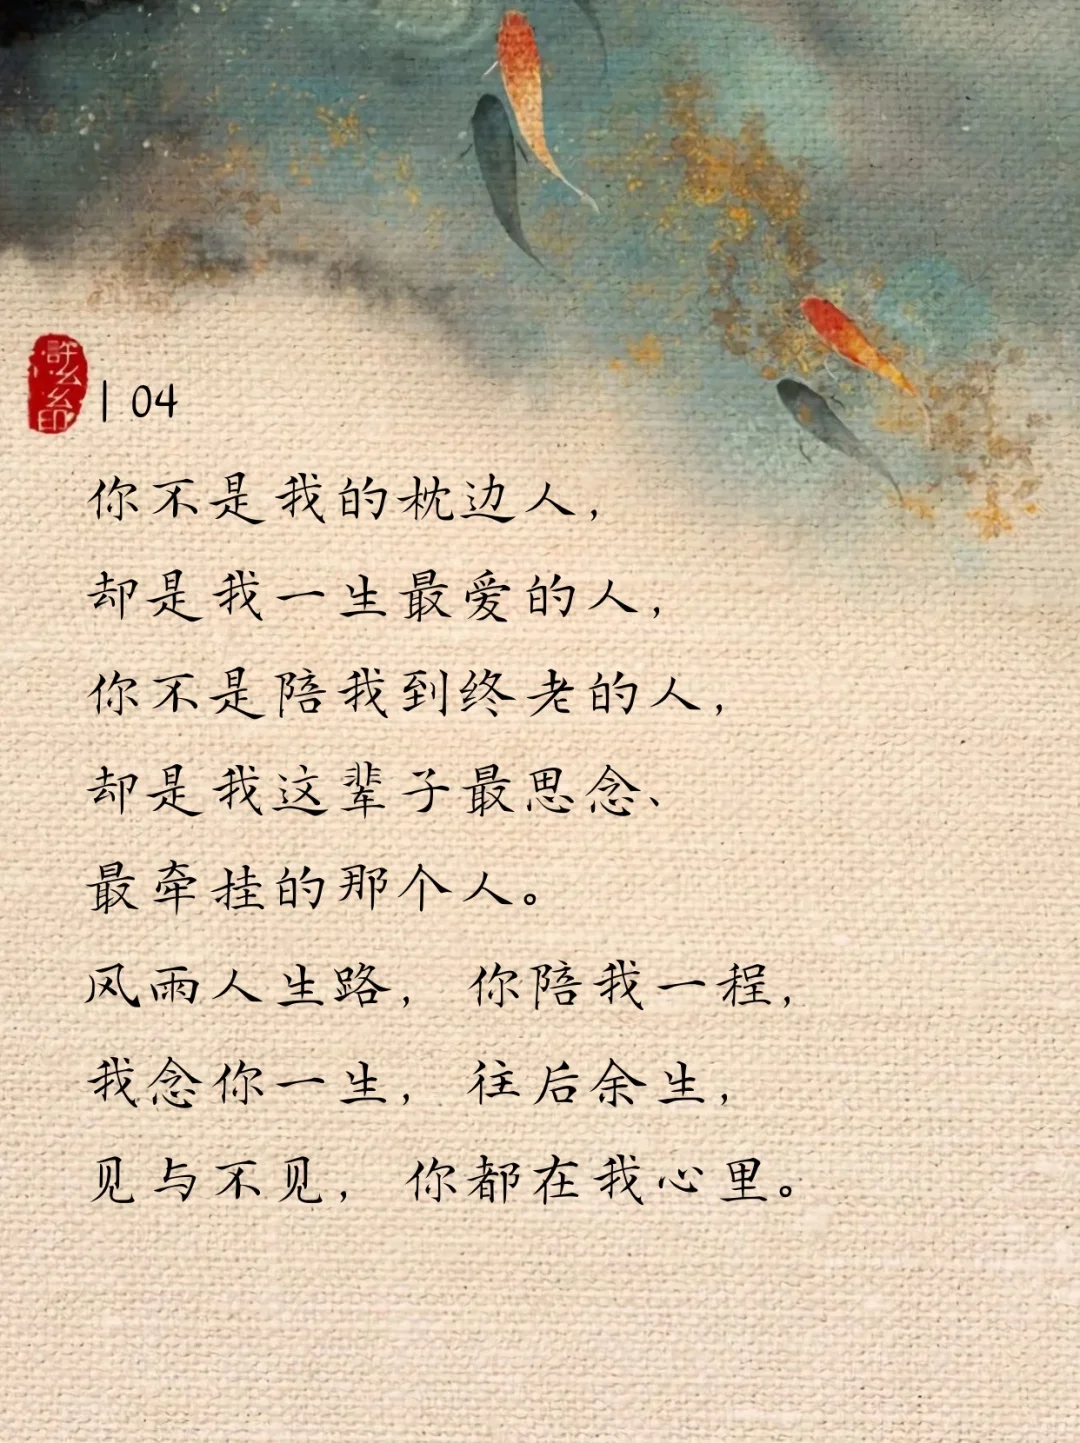 許么么印
| 04
你不是我的枕边人，
却是我一生最爱的人，
你不是陪我到终老的人，
却是我这辈子最思念、
最牵挂的那个人。
风雨人生路，你陪我一程，
我念你一生，往后余生，
见与不见，你都在我心里。